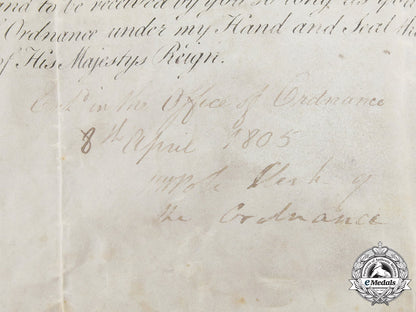 and to be received by you so long as you
Ordnance under my Hand and Seal the
of His Majestys Reign.
Entd in the Office of Ordnance
8th April 1805
Clerk of
the Ordnance
eMedals